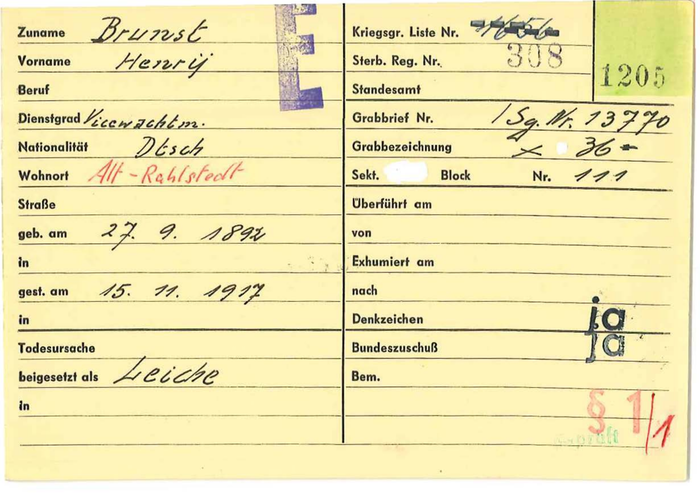 Zuname Brunst
Vorname Henrij
Beruf
Dienstgrad Vicewachtm.
Nationalität Dtsch
Wohnort Alt-Rahlstedt
Straße
geb. am 27. 9. 1892
in
gest. am 15. 11. 1917
in
Todesursache
beigesetzt als Leiche
in
E
Kriegsgr. Liste Nr. 4656
Sterb. Reg. Nr. 308
Standesamt
1205
Grabbrief Nr. / Sg. Nr. 13770
Grabbezeichnung 36
Sekt. Block Nr. 111
Überführt am
von
Exhumiert am
nach
Denkzeichen ja
Bundeszuschuß ja
Bem.
§ 1/1
geprüft